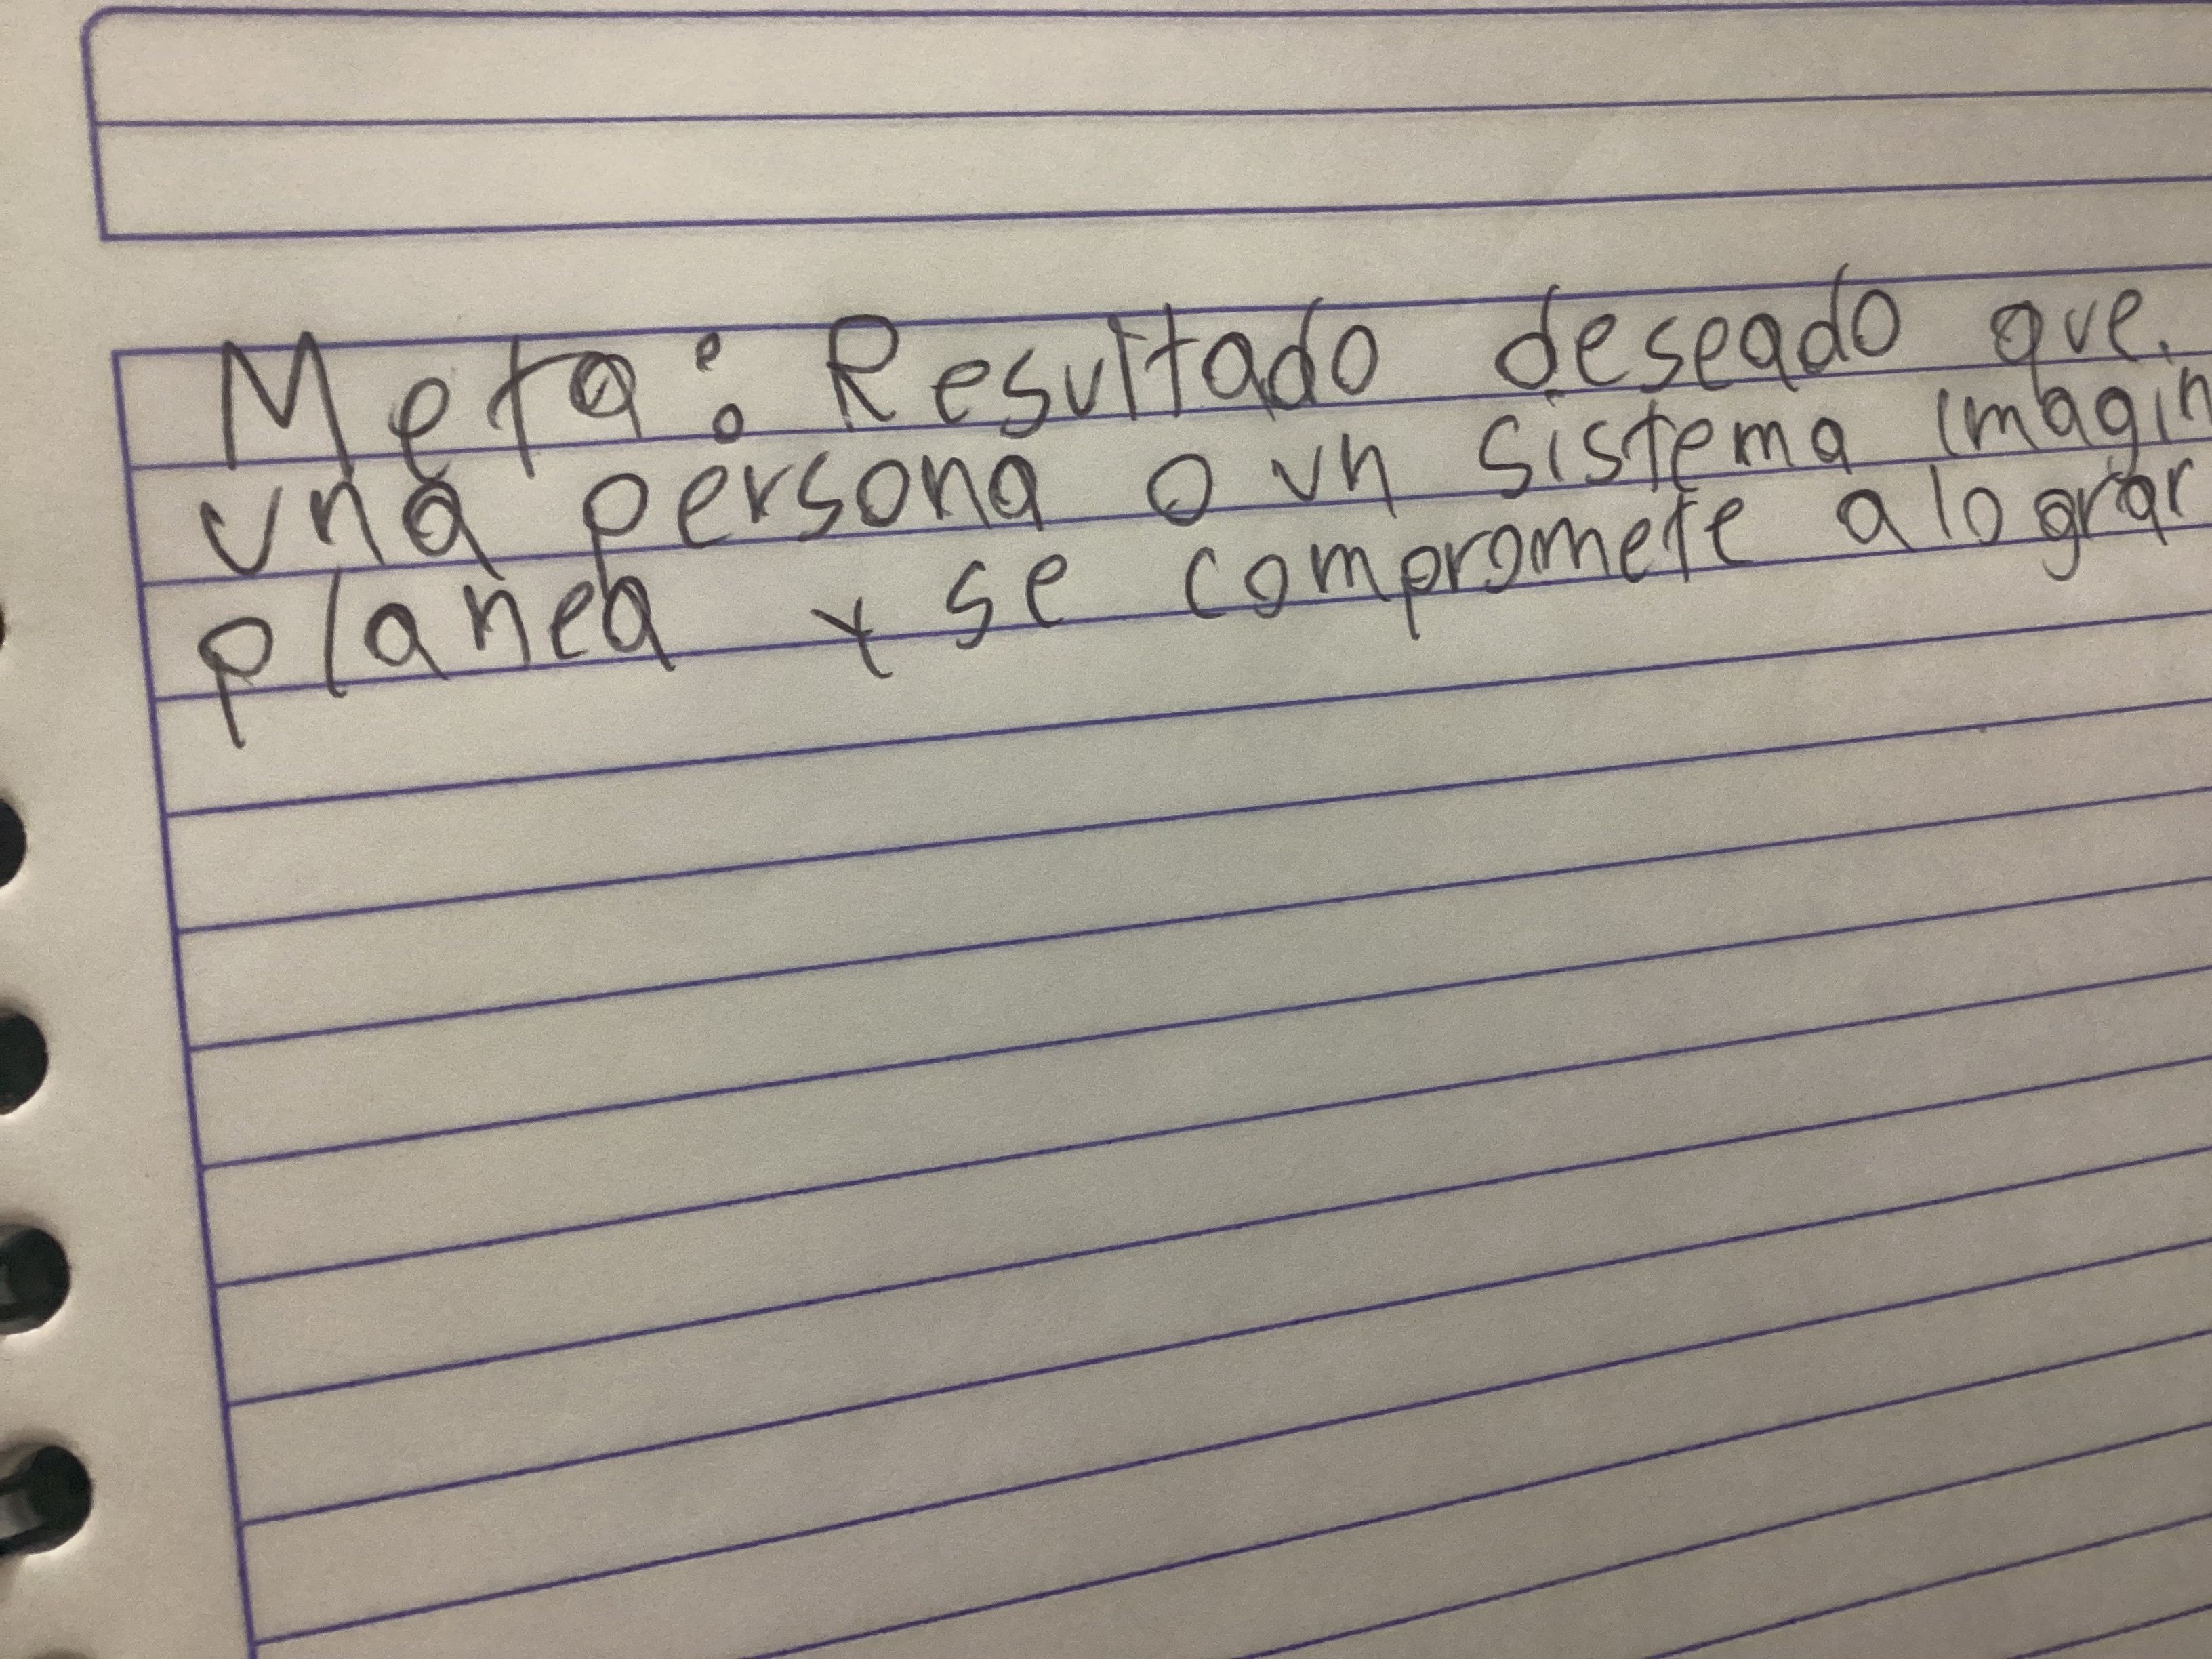 Meta: Resultado deseado que
una persona o un sistema imagin
planea y se compromete a lograr